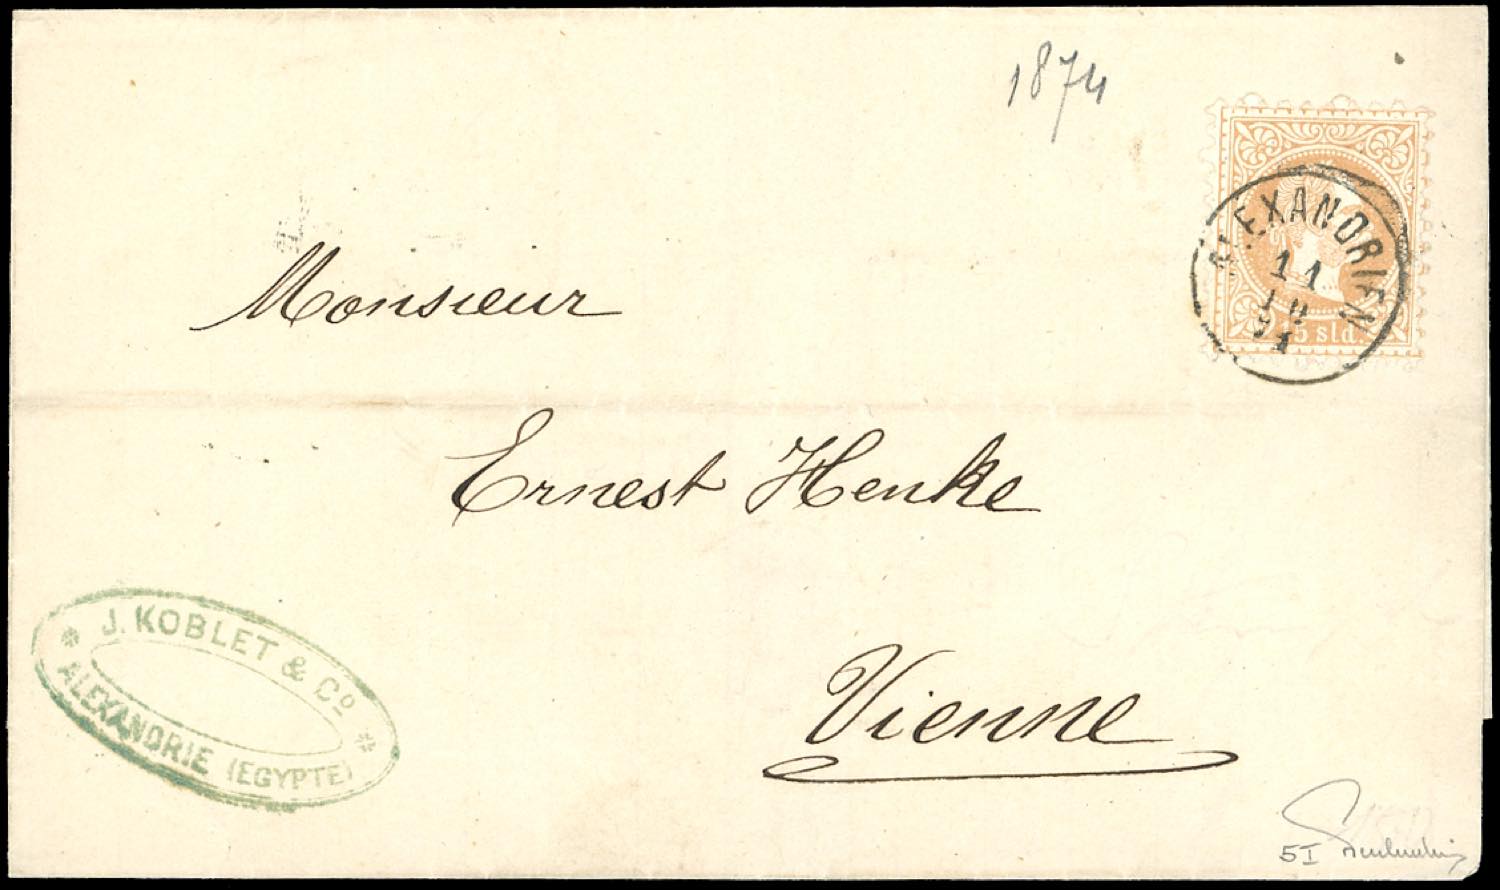 1874
ALEXANDRIEN
11
10
15 sld.
Monsieur
Ernest Henke
Vienne
J. KOBLET & Co
ALEXANDRIE (EGYPTE)
5I